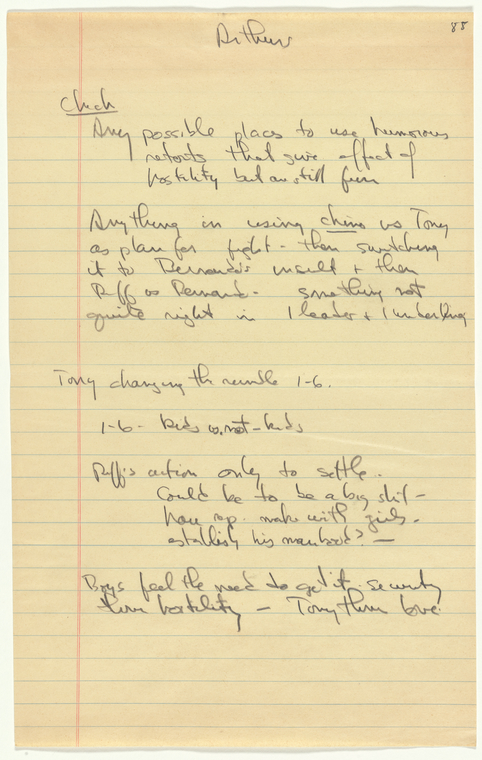 88
Arthur
Check
Any possible places to use humorous
retorts that give effect of
hostility but are still fun
Anything in using chino vs Tony
as plan for fight - then switching
it to Bernardo's insult + then
Riff vs Bernard - something not
quite right in 1 leader + 1 underling
Tony changing the rumble 1-6.
1-6 - kids vs. not-kids
Riff's action only to settle.
Could be to be a big shit -
have rep. make with girls -
establish his manhood? -
Boys feel the need to get it - security
thru hostility - Tony thru love.